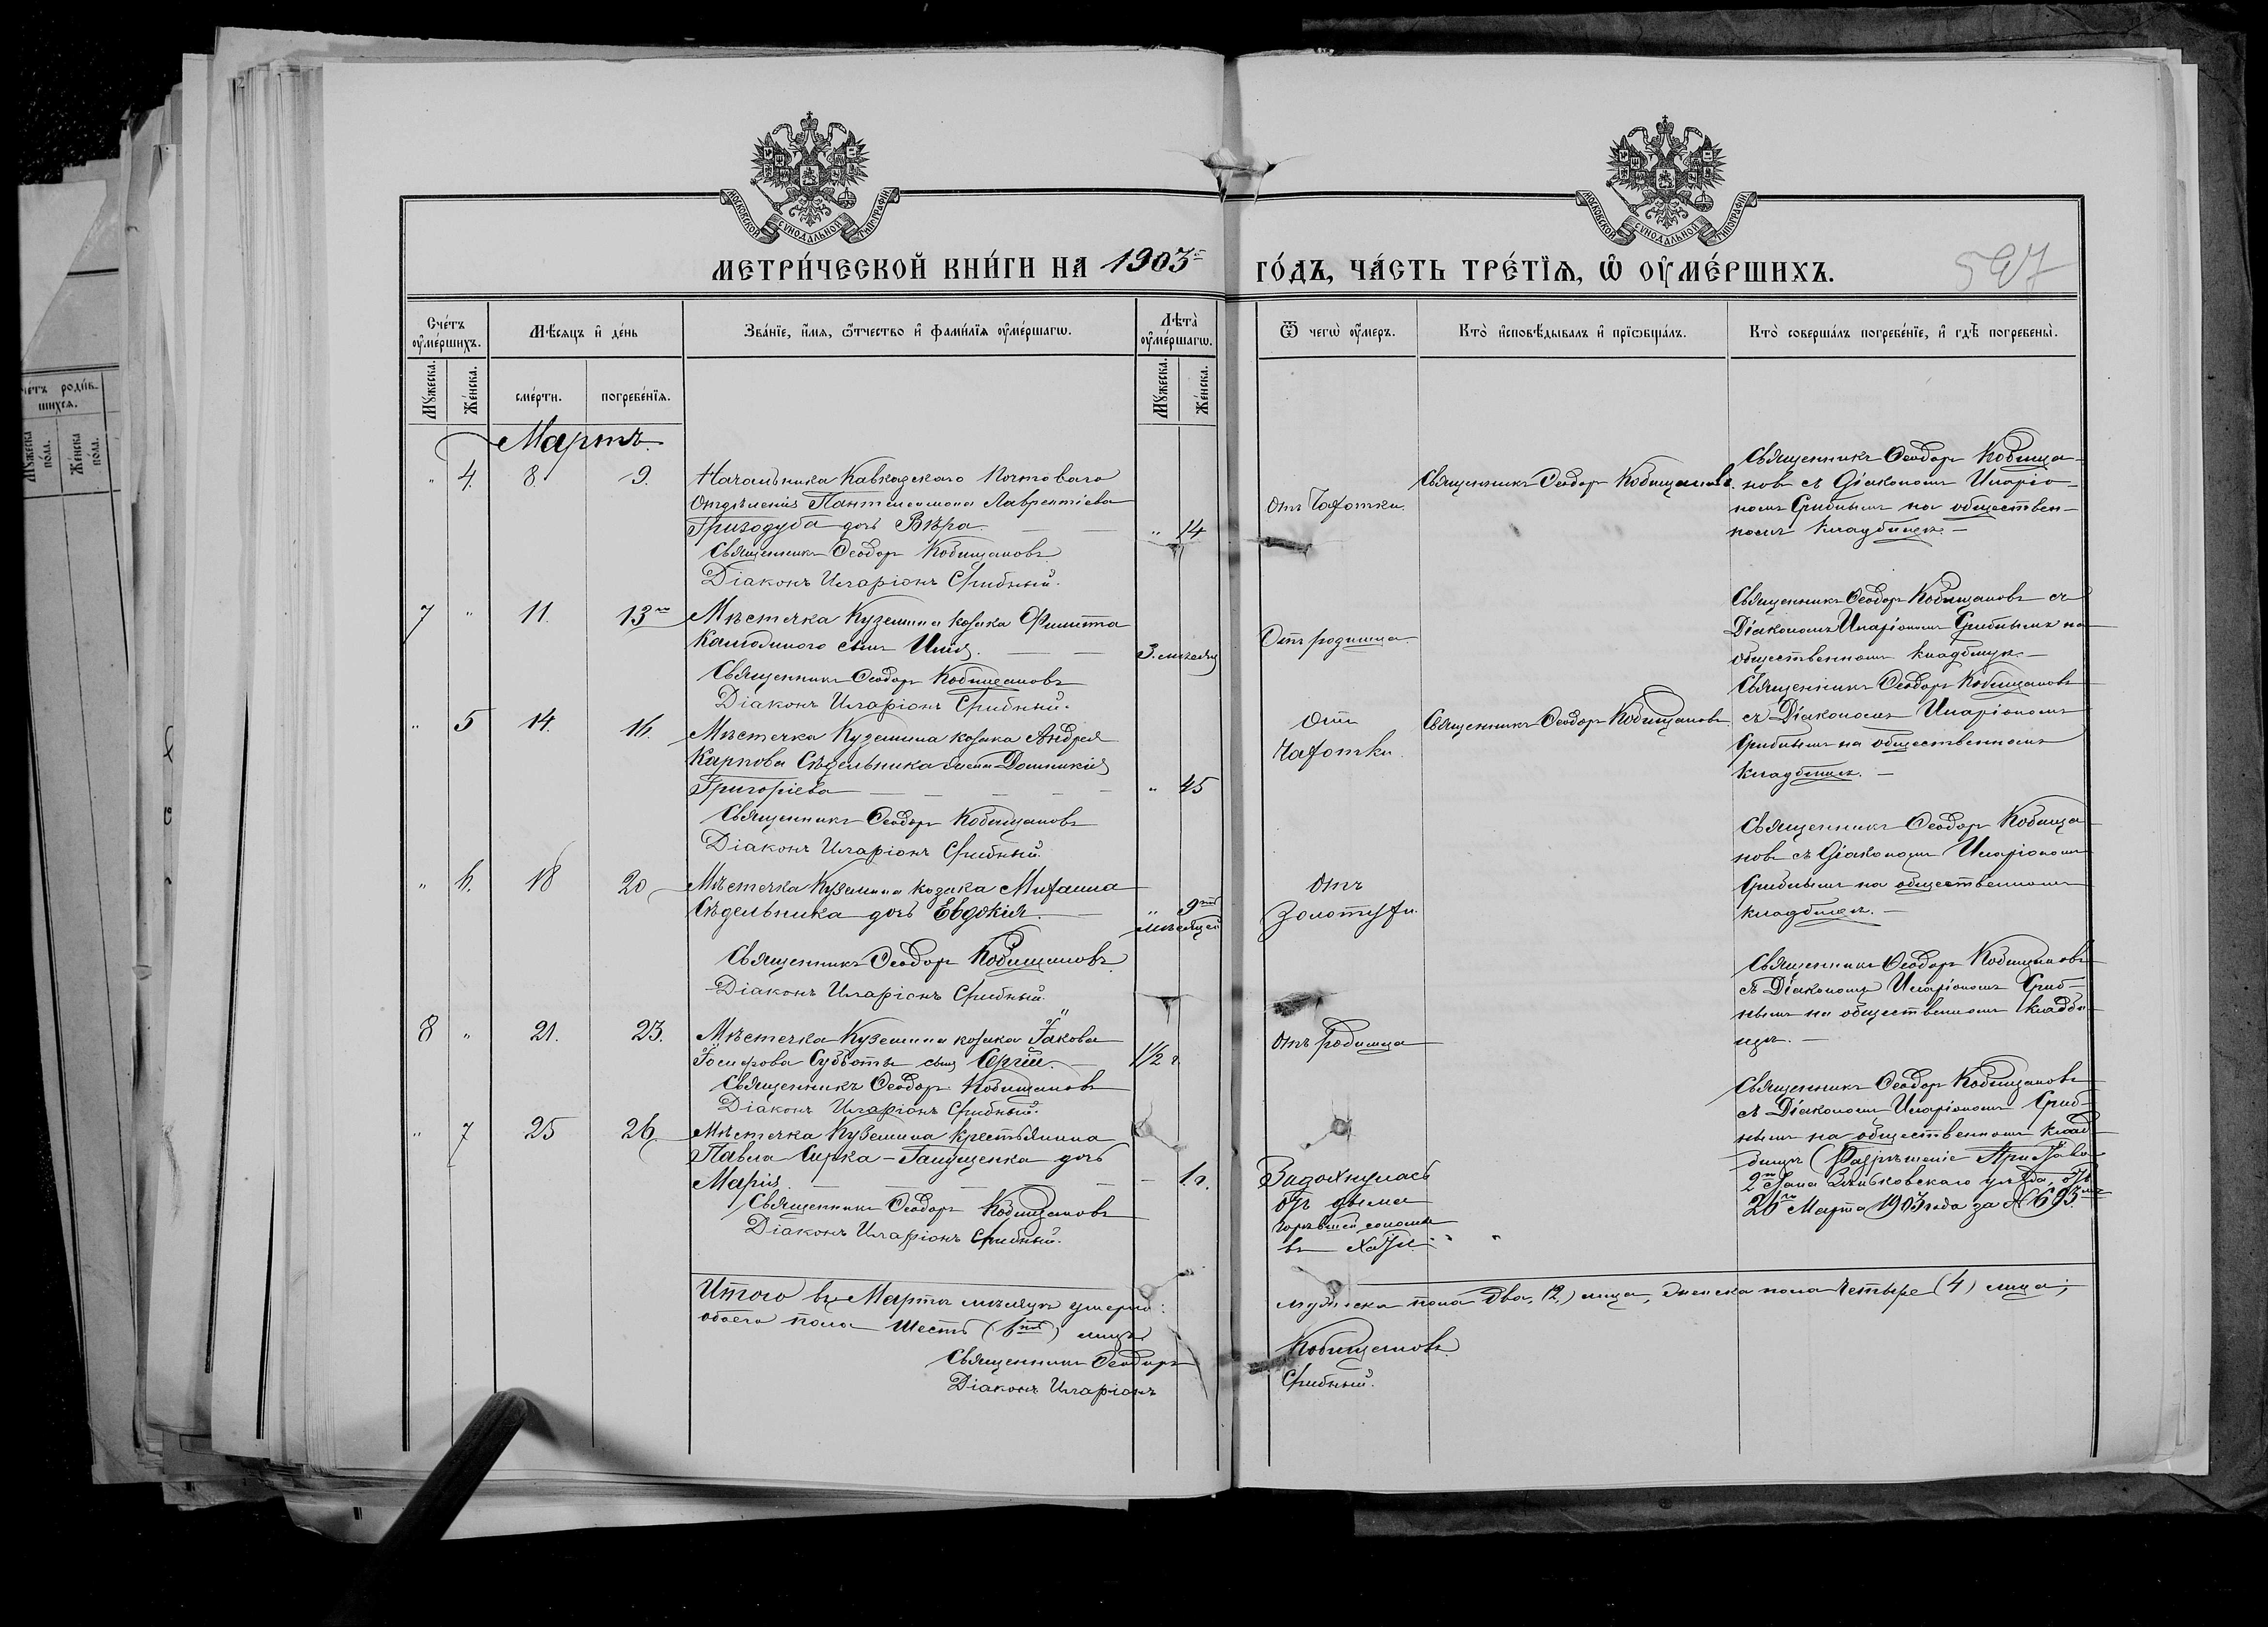 МОСКОВСКОЙ СУНОДАЛЬНОЙ ТИПОГРАФІИ
МОСКОВСКОЙ СУНОДАЛЬНОЙ ТИПОГРАФІИ
МЕТРИ́ЧЕСКОЙ КНИ́ГИ НА 1903й ГО́ДЪ, ЧА́СТЬ ТРЕ́ТЇѦ, Ѡ ОУ҆МЕ́РШИХЪ.
597
Сче́тъ оу҆ме́ршихъ.
Мѣ́сяцъ и҆ де́нь
Зва́нїе, и҆́мя, ѻ҆́тчество и҆ фами́лїя оу҆ме́ршагѡ.
Лѣ́та оу҆ме́ршагѡ.
Ѿ чегѡ̀ оу҆́меръ.
Кто̀ и҆сповѣ́дывалъ и҆ прїѡбща́лъ.
Кто̀ соверша́лъ погребе́нїе, и҆ гдѣ̀ погребены̀.
Мꙋ́жеска. Же́нска.
сме́рти. погребе́нїя.
Мꙋ́жеска. Же́нска.
Мартъ
" 4. 8. 9.
Начальника Кавказскаго Почтоваго
Отдѣленія Пантелеимона Лаврентіева
Григодуба дочь Вѣра
" 14
Священникъ Ѳеодоръ Кобищановъ
Діаконъ Иларіонъ Срибный.
Отъ Чахотки.
Священникъ Ѳеодоръ Кобищановъ.
Священникъ Ѳеодоръ Кобища-
новъ съ Діакономъ Иларіо-
номъ Срибнымъ на обществен-
номъ кладбищѣ.
7 " 11. 13го
Мѣстечка Куземина козака Филиппа
сынъ Илія.
3. мѣсяц
Священникъ Ѳеодоръ Кобищановъ
Діаконъ Иларіонъ Срибный.
Отъ родимца
Священникъ Ѳеодоръ Кобищановъ съ
Діакономъ Иларіономъ Срибнымъ на
общественномъ кладбищѣ.
" 5 14. 16.
Мѣстечка Куземина козака Андрея
Карпова Сѣдельника жена Домникія
Григоріева
" 45
Священникъ Ѳеодоръ Кобищановъ
Діаконъ Иларіонъ Срибный.
Отъ
Чахотки.
Священникъ Ѳеодоръ Кобищановъ
Священникъ Ѳеодоръ Кобищановъ
съ Діакономъ Иларіономъ
Срибнымъ на общественномъ
кладбищѣ.
" 6. 18 20
Мѣстечка Куземина козака Михаила
Сѣдельника дочь Евдокія.
" 9ти
мѣсяцей
Священникъ Ѳеодоръ Кобищановъ
Діаконъ Иларіонъ Срибный.
Отъ
Золотухи.
Священникъ Ѳеодоръ Кобища
новъ съ Діакономъ Иларіономъ
Срибнымъ на общественномъ
кладбищѣ.
8 " 21. 23.
Мѣстечка Куземина козака Іакова
Іосифова Субботы сынъ Сергій.
1/2 г.
Священникъ Ѳеодоръ Кобищановъ
Діаконъ Иларіонъ Срибный.
Отъ Родимца
Священникъ Ѳеодоръ Кобищановъ
съ Діакономъ Иларіономъ Сриб-
нымъ на общественномъ кладби
щѣ.
" 7 25 26
Мѣстечка Куземина крестьянина
Павла Сирка-Галущенка дочь
Марія.
1. г.
Священникъ Ѳеодоръ Кобищановъ
Діаконъ Иларіонъ Срибный.
Задохнулась
отъ дыма
горѣвшей соломы
въ Хатѣ.
Священникъ Ѳеодоръ Кобищановъ
съ Діакономъ Иларіономъ Сриб-
нымъ на общественномъ клад-
бищѣ (Разрѣшеніе Пристава
2го Стана Зѣньковскаго уѣзда, отъ
26го Марта 1903 года за № 693мъ
Итого въ Мартѣ мѣсяцѣ умерло: мужеска пола два, (2) лица, женска пола Четыре (4) лица;
обоего пола Шесть (6ть) лицъ
Священникъ Ѳеодоръ Кобищановъ
Діаконъ Иларіонъ Срибный.